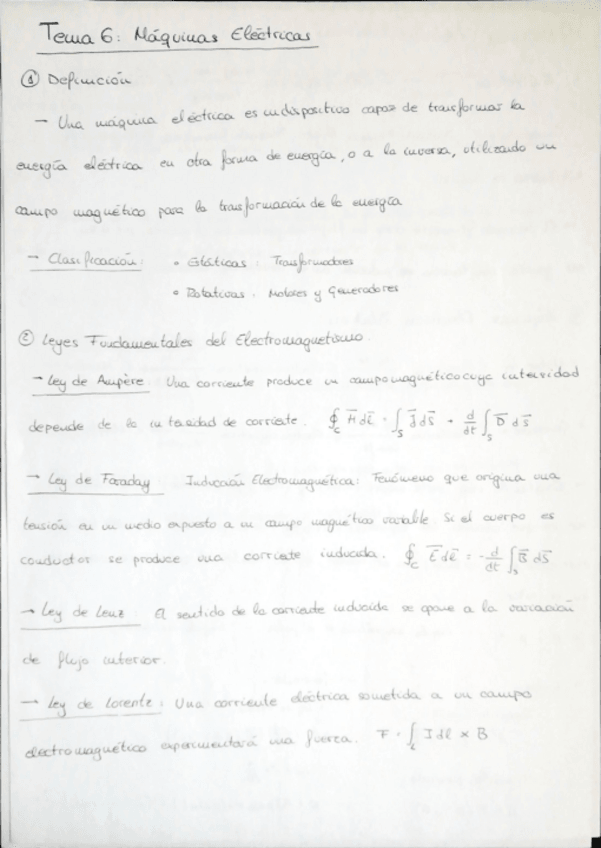 Tema 6: Máquinas Eléctricas
① Definición
- Una máquina eléctrica es un dispositivo capaz de transformar la
energía eléctrica en otra forma de energía, o a la inversa, utilizando un
campo magnético para la transformación de la energía
- Clasificación: • Estáticas: Transformadores
• Rotativas: Motores y Generadores
② Leyes Fundamentales del Electromagnetismo
- Ley de Ampère: Una corriente produce un campo magnético cuya intensidad
depende de la intensidad de corriente. ∮_C H̅ dl̅ = ∫_S J̅ ds̅ + d/dt ∫_S D̅ ds̅
- Ley de Faraday Inducción Electromagnética: Fenómeno que origina una
tensión en un medio expuesto a un campo magnético variable. Si el cuerpo es
conductor se produce una corriente inducida. ∮_C E̅ dl̅ = - d/dt ∫_S B̅ ds̅
→ Ley de Lenz: El sentido de la corriente inducida se opone a la variación
de flujo interior.
→ Ley de Lorente: Una corriente eléctrica sometida a un campo
electromagnético experimentará una fuerza. F = ∫_L I dl × B